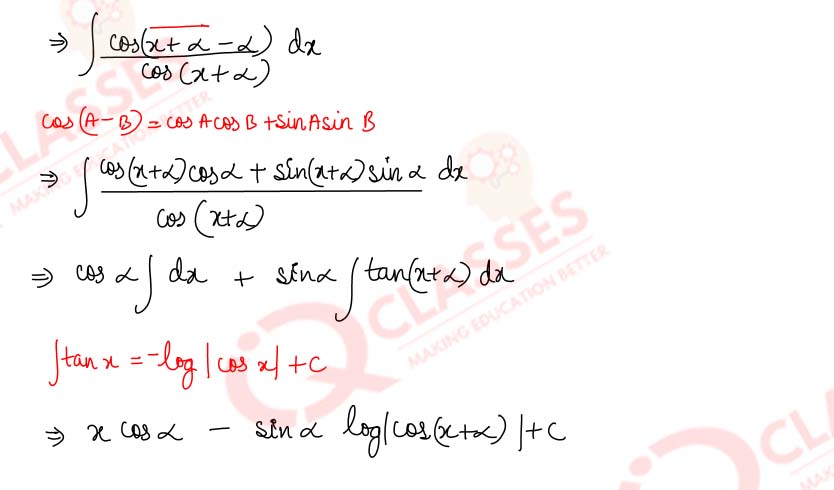 ⇒ ∫ cos(x+α-α)/cos(x+α) dx
cos(A-B) = cosAcosB + sinAsin B
⇒ ∫ cos(x+α)cosα + sin(x+α)sinα/cos(x+α) dx
⇒ cos α ∫ dx + sinα ∫ tan(x+α) dx
∫tan x = -log|cos x| + C
⇒ x cos α - sin α log|cos(x+α)| + C
IQ CLASSES
MAKING EDUCATION BETTER